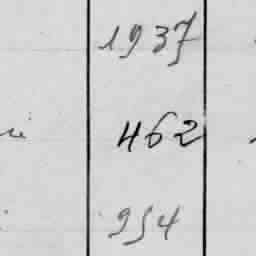 1937
462
954